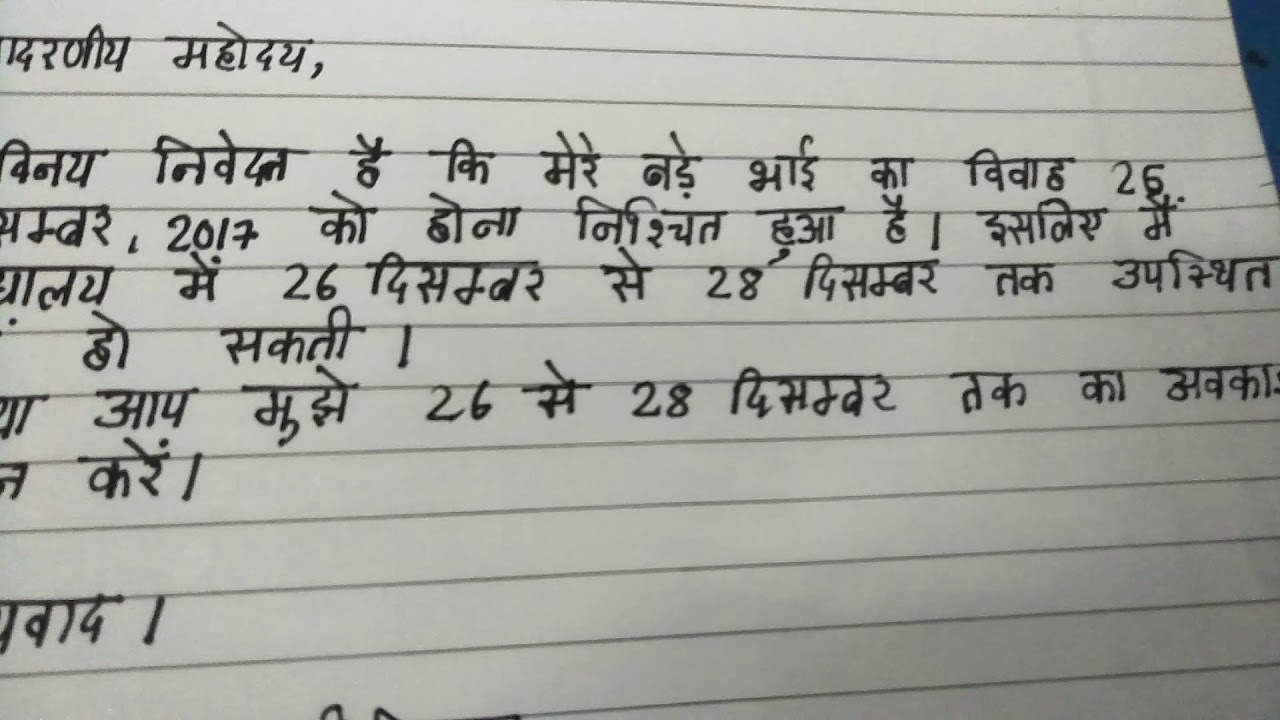 ादरणीय महोदय,
विनय निवेदन है कि मेरे बड़े भाई का विवाह 26
सम्बर, 2017 को होना निश्चित हुआ है। इसलिए मैं
द्यालय में 26 दिसम्बर से 28 दिसम्बर तक उपस्थित
हो सकती।
या आप मुझे 26 से 28 दिसम्बर तक का अवका
न करें।
यवाद।